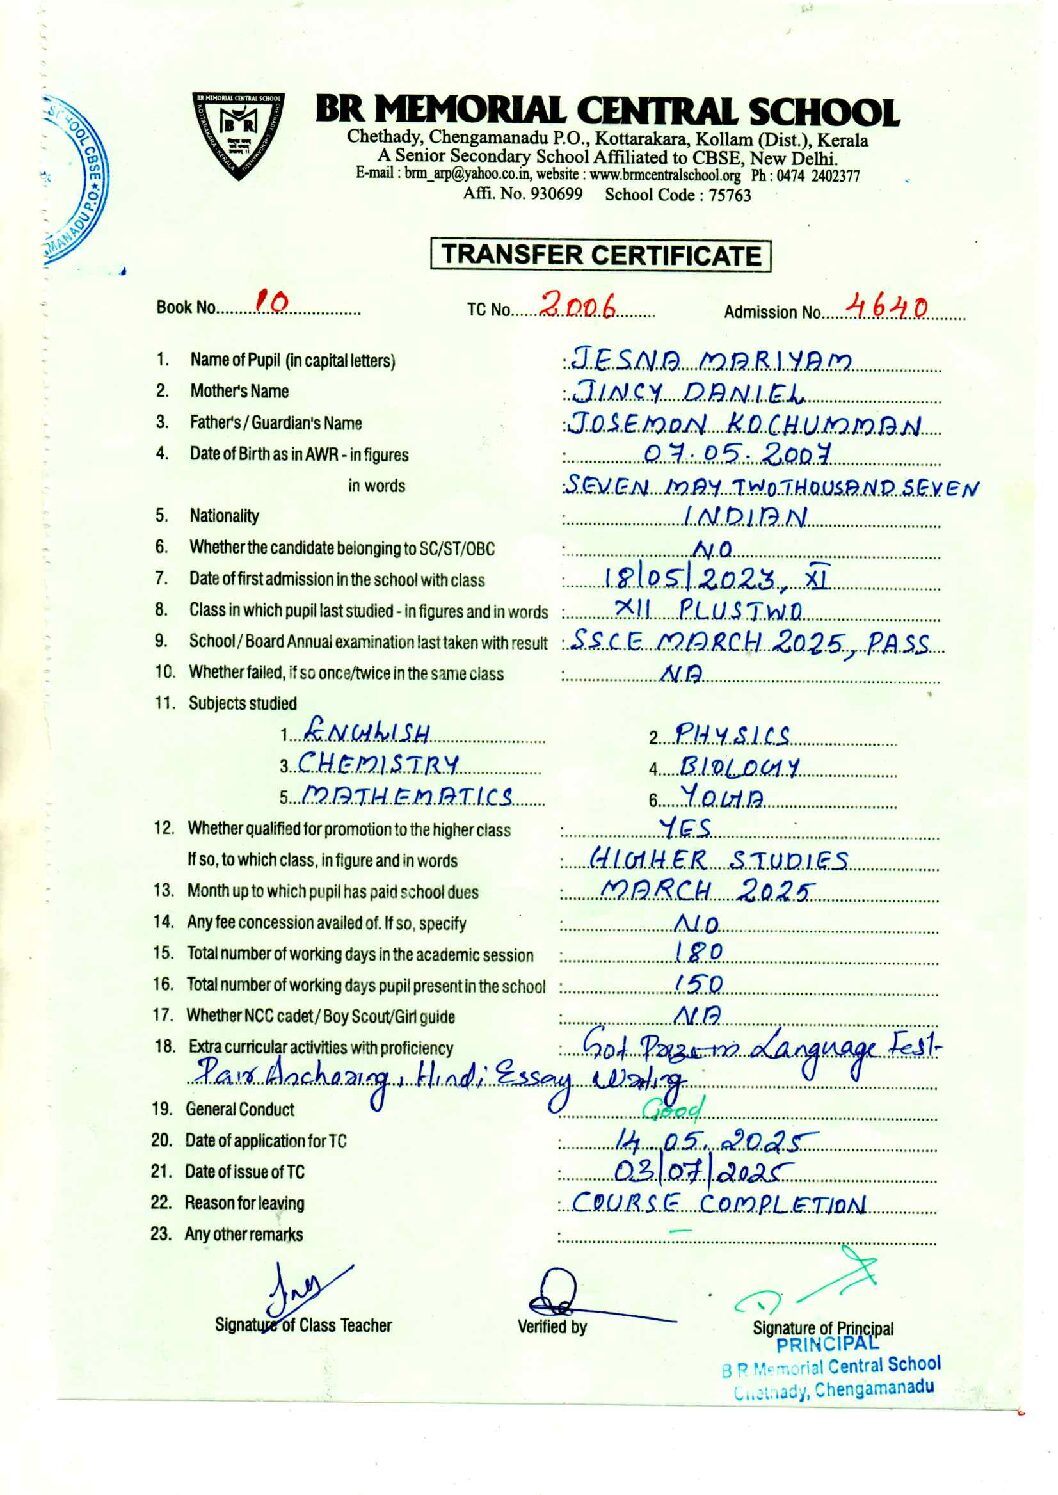 BR MEMORIAL CENTRAL SCHOOL
BR
BR MEMORIAL CENTRAL SCHOOL
Chethady, Chengamanadu P.O., Kottarakara, Kollam (Dist.), Kerala
A Senior Secondary School Affiliated to CBSE, New Delhi.
E-mail : brm_arp@yahoo.co.in, website : www.brmcentralschool.org Ph : 0474 2402377
Affi. No. 930699 School Code : 75763
SCHOOL CBSE
MANADU P.O.
TRANSFER CERTIFICATE
Book No. 10 TC No. 2006 Admission No. 4640
1. Name of Pupil (in capital letters) : JESNA MARIYAM
2. Mother's Name : JINCY DANIEL
3. Father's / Guardian's Name : JOSEMON KOCHUMMAN
4. Date of Birth as in AWR - in figures : 07.05.2007
in words : SEVEN MAY TWO THOUSAND SEVEN
5. Nationality : INDIAN
6. Whether the candidate belonging to SC/ST/OBC : NO
7. Date of first admission in the school with class : 18/05/2023, XI
8. Class in which pupil last studied - in figures and in words : XII PLUS TWO
9. School / Board Annual examination last taken with result : SSCE MARCH 2025, PASS
10. Whether failed, if so once/twice in the same class : NA
11. Subjects studied
1. ENGLISH 2. PHYSICS
3. CHEMISTRY 4. BIOLOGY
5. MATHEMATICS 6. YOGA
12. Whether qualified for promotion to the higher class : YES
If so, to which class, in figure and in words : HIGHER STUDIES
13. Month up to which pupil has paid school dues : MARCH 2025
14. Any fee concession availed of. If so, specify : NO
15. Total number of working days in the academic session : 180
16. Total number of working days pupil present in the school : 150
17. Whether NCC cadet / Boy Scout/Girl guide : NA
18. Extra curricular activities with proficiency : Got Language Fest-
Pair Anchoring, Hindi Essay Writing
19. General Conduct : Good
20. Date of application for TC : 14.05.2025
21. Date of issue of TC : 03/07/2025
22. Reason for leaving : COURSE COMPLETION
23. Any other remarks : —
Signature of Class Teacher Verified by Signature of Principal
PRINCIPAL
B R Memorial Central School
Chethady, Chengamanadu